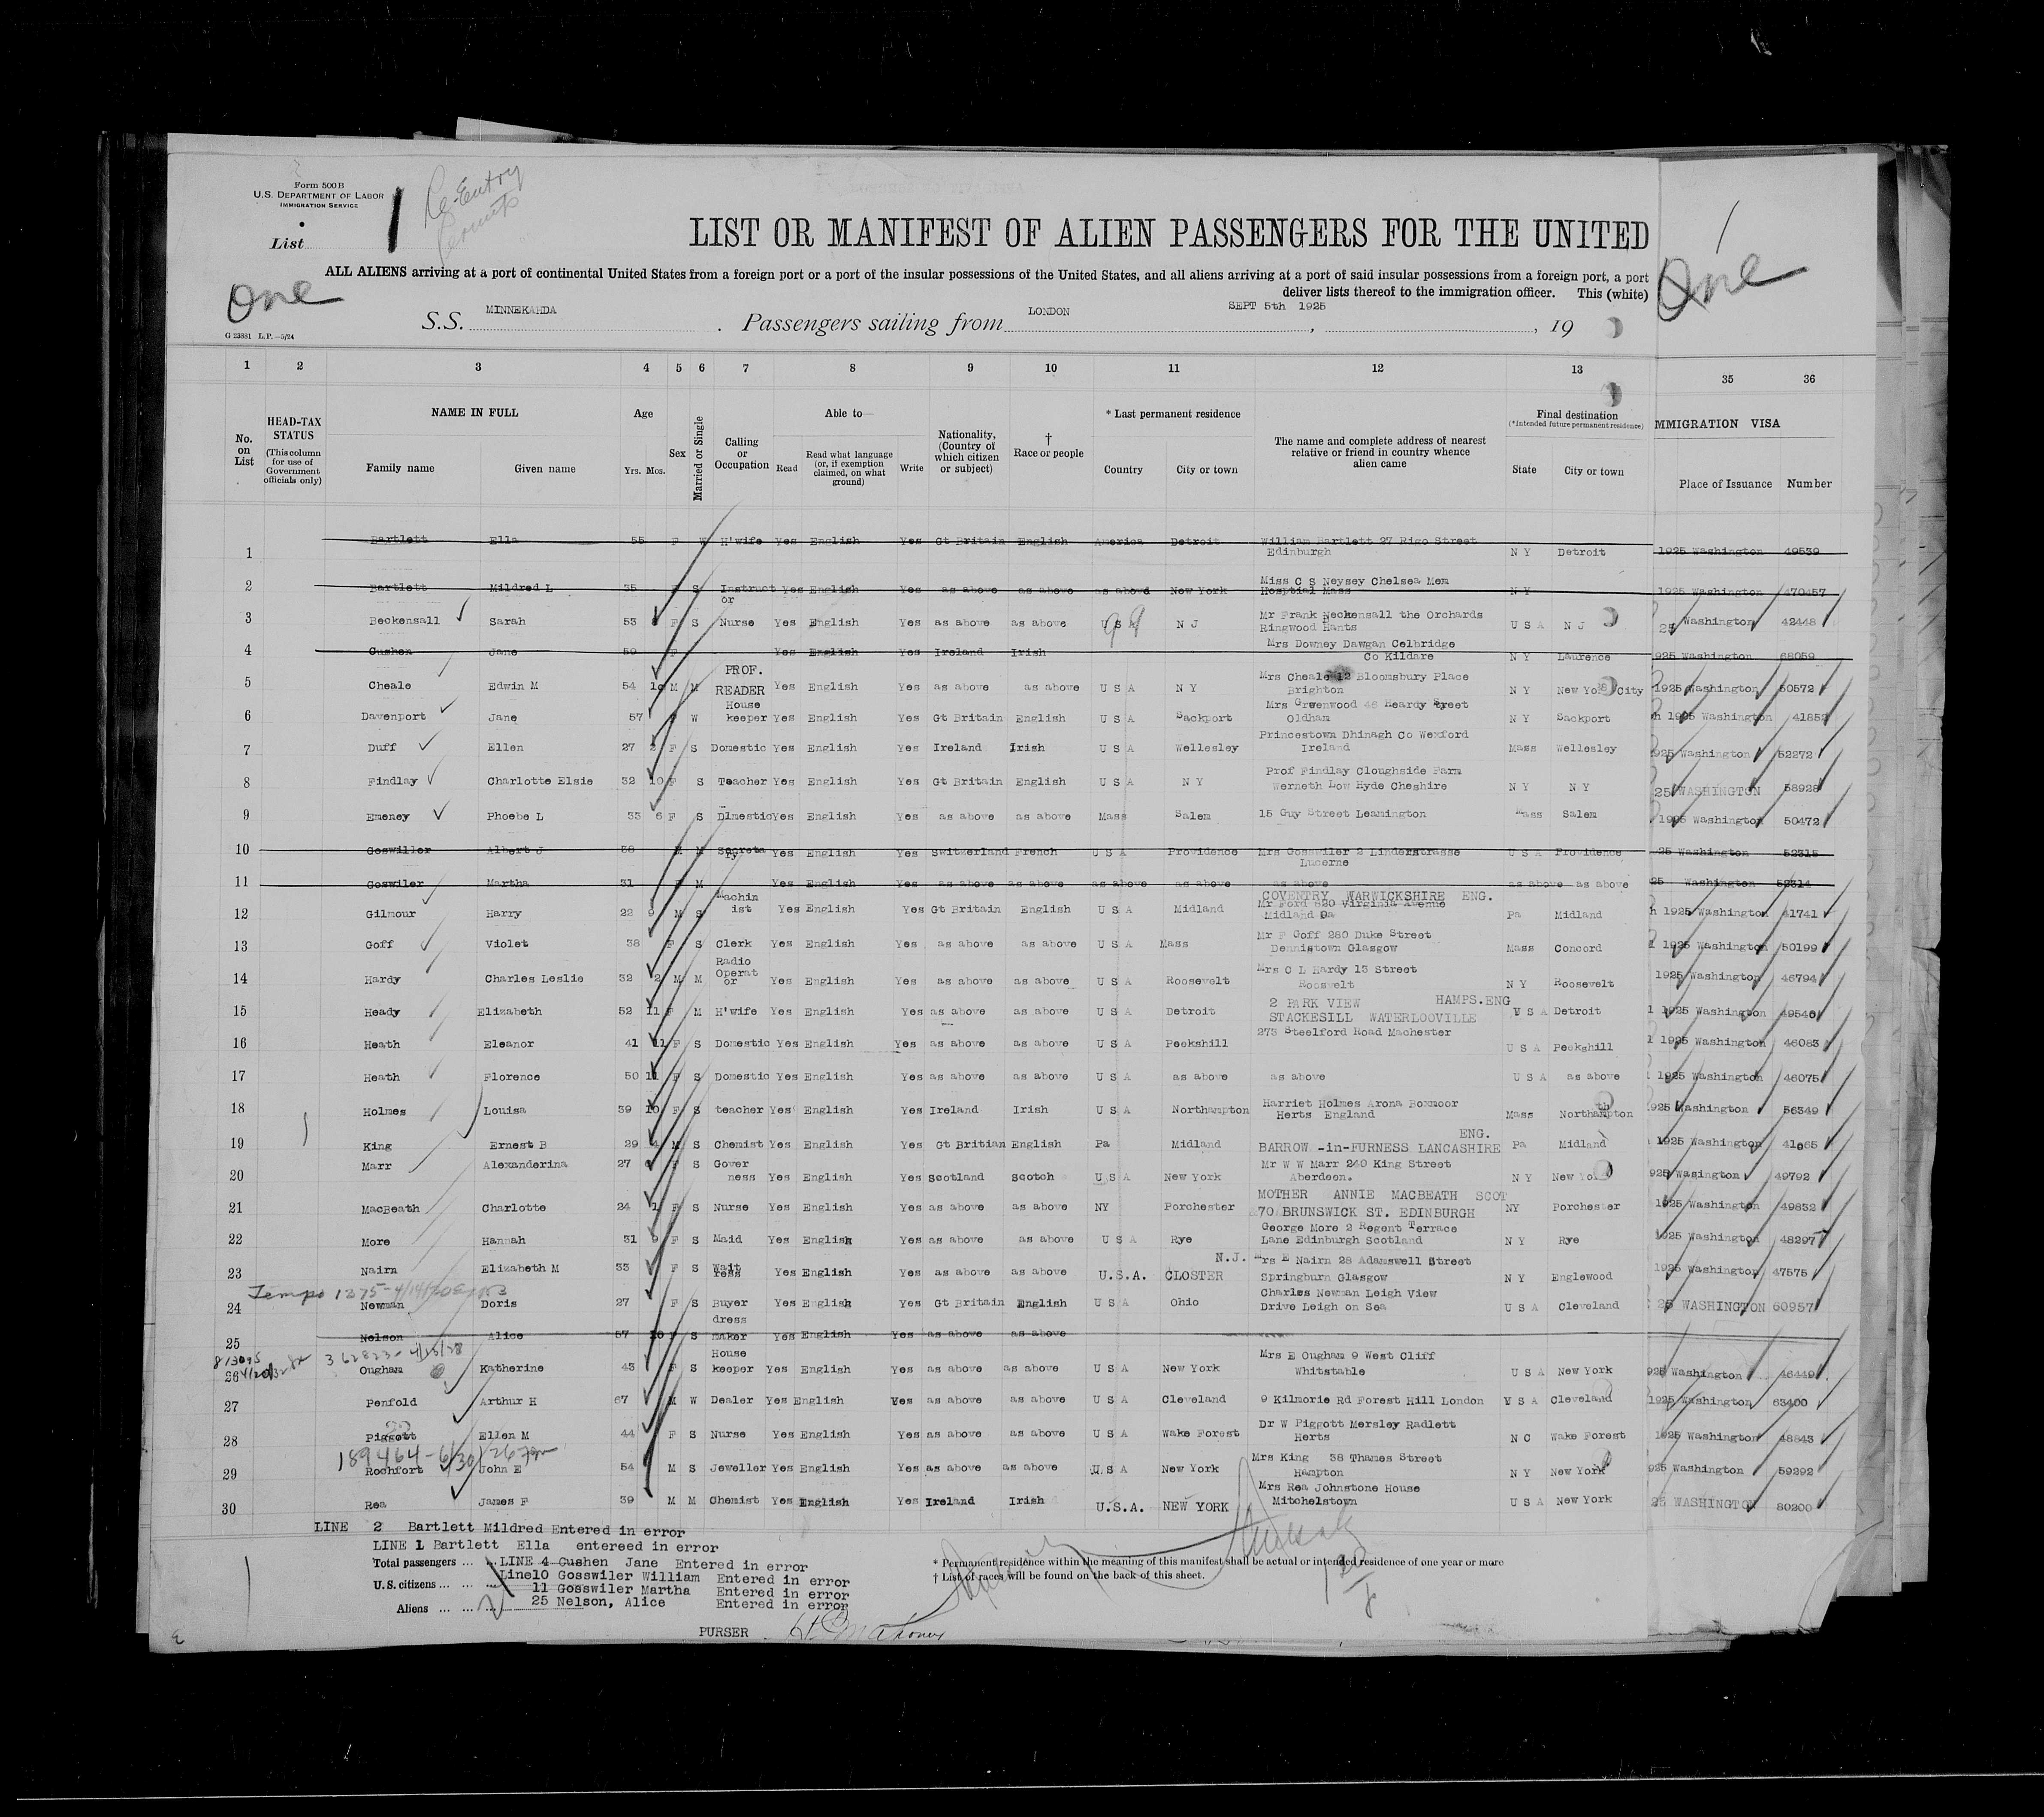 Form 500 B
U.S. DEPARTMENT OF LABOR
IMMIGRATION SERVICE
Re-Entry
Permits
List 1
One
LIST OR MANIFEST OF ALIEN PASSENGERS FOR THE UNITED
ALL ALIENS arriving at a port of continental United States from a foreign port or a port of the insular possessions of the United States, and all aliens arriving at a port of said insular possessions from a foreign port, a port
deliver lists thereof to the immigration officer. This (white)
One
S.S. MINNEKAHDA . Passengers sailing from LONDON , SEPT 5th 1925 , 19
G 23881 L.P.—5/24
1 2 3 4 5 6 7 8 9 10 11 12 13 35 36
No. on List
HEAD-TAX STATUS (This column for use of Government officials only)
NAME IN FULL
Family name Given name
Age
Yrs. Mos.
Sex
Married or Single
Calling or Occupation
Able to—
Read Read what language (or, if exemption claimed, on what ground) Write
Nationality, (Country of which citizen or subject)
† Race or people
* Last permanent residence
Country City or town
The name and complete address of nearest relative or friend in country whence alien came
Final destination
(*Intended future permanent residence)
State City or town
MMIGRATION VISA
Place of Issuance Number
1 Bartlett Ella 55 F W H'wife Yes English Yes Gt Britain English America Detroit William Bartlett 27 Rigo Street Edinburgh N Y Detroit 1925 Washington 49539
2 Bartlett Mildred L 35 F S Instruct or Yes English Yes as above as above as abovd New York Miss C S Neysey Chelsea Mem Hosptial Mass N Y 1925 Washington 470457
3 Beckensall Sarah 53 F S Nurse Yes English Yes as above as above U S A N J Mr Frank Neckensall the Orchards Ringwood Hants U S A N J 25 Washington 42448
4 Cushen Jane 59 F Yes English Yes Ireland Irish Mrs Downey Dawgan Celbridge Co Kildare N Y Laurence 925 Washington 68059
5 Cheale Edwin M 54 10 M M PROF. READER Yes English Yes as above as above U S A N Y Mrs Cheale 12 Bloomsbury Place Brighton N Y New York City 1925 Washington 50572
6 Davenport Jane 57 W House keeper Yes English Yes Gt Britain English U S A Sackport Mrs Greenwood 46 Heardy Street Oldham N Y Sackport h 1925 Washington 41852
7 Duff Ellen 27 F S Domestic Yes English Yes Ireland Irish U S A Wellesley Princestown Dhinagh Co Wexford Ireland Mass Wellesley 1925 Washington 52272
8 Findlay Charlotte Elsie 32 10 F S Teacher Yes English Yes Gt Britain English U S A N Y Prof Findlay Cloughside Farm Werneth Low Hyde Cheshire N Y N Y 25 WASHINGTON 58928
9 Emeney Phoebe L 33 6 F S Dlmestic Yes English Yes as above as above Mass Salem 15 Guy Street Leamington Mass Salem 1925 Washington 50472
10 Goswiller Albert J 38 M M Secreta ry Yes English Yes Switzerland French U S A Providence Mrs Gosswiler 2 Linderstrasse Lucerne U S A Providence 25 Washington 52315
11 Goswiler Martha 31 F M Yes English Yes as above as above as above as above as above as above as above 25 Washington 52314
12 Gilmour Harry 22 9 M S Machin ist Yes English Yes Gt Britain English U S A Midland COVENTRY WARWICKSHIRE ENG. Mr Ford 820 Virginia Avenue Midland Pa Pa Midland h 1925 Washington 41741
13 Goff Violet 38 F S Clerk Yes English Yes as above as above U S A Mass Mr F Goff 280 Duke Street Dennistown Glasgow Mass Concord 1925 Washington 50199
14 Hardy Charles Leslie 32 2 M M Radio Operat or Yes English Yes as above as above U S A Roosevelt Mrs C L Hardy 13 Street Roosvelt N Y Roosevelt 1925 Washington 46794
15 Heady Elizabeth 52 11 F M H'wife Yes English Yes as above as above U S A Detroit 2 PARK VIEW HAMPS.ENG STACKESILL WATERLOOVILLE U S A Detroit 1 1925 Washington 49540
16 Heath Eleanor 41 11 F S Domestic Yes English Yes as above as above U S A Peekshill 273 Steelford Road Machester U S A Peekshill 1925 Washington 46083
17 Heath Florence 50 11 F S Domestic Yes English Yes as above as above U S A as above as above U S A as above 1925 Washington 46075
18 Holmes Louisa 39 10 F S teacher Yes English Yes Ireland Irish U S A Northampton Harriet Holmes Arona Boxmoor Herts England Mass Northampton 1925 Washington 56349
19 King Ernest B 29 4 M S Chemist Yes English Yes Gt Britian English Pa Midland ENG. BARROW -in-FURNESS LANCASHIRE Pa Midland 1925 Washington 41065
20 Marr Alexanderina 27 F S Gover ness Yes English Yes Scotland Scotch U S A New York Mr W W Marr 240 King Street Aberdeen. N Y New York 925 Wasington 49792
21 MacBeath Charlotte 24 1 F S Nurse Yes English Yes as above as above NY Porchester MOTHER ANNIE MACBEATH SCOT 70 BRUNSWICK ST. EDINBURGH NY Porchester 1925 Washington 49832
22 More Hannah 31 9 F S Maid Yes English Yes as above as above U S A Rye George More 2 Regent Terrace Lane Edinburgh Scotland N Y Rye 1925 Washington 48297
23 Nairn Elizabeth M 33 F S Wait ress Yes English Yes as above as above U.S.A. CLOSTER N.J. Mrs E Nairn 28 Adamswell Street Springburn Glasgow N Y Englewood 1925 Washington 47575
Tempo 1375-4/14/
24 Newman Doris 27 F S Buyer Yes English Yes Gt Britain English U S A Ohio Charles Newman Leigh View Drive Leigh on Sea U S A Cleveland 25 WASHINGTON 60957
25 Nelson Alice 57 10 F S dress maker Yes English Yes as above as above
362823 4/13/28
26 Ougham Katherine 43 F S House keeper Yes English Yes as above as above U S A New York Mrs E Ougham 9 West Cliff Whitstable U S A New York 925 Washington 46449
27 Penfold Arthur H 67 M W Dealer Yes English Yes as above as above U S A Cleveland 9 Kilmorie Rd Forest Hill London U S A Cleveland 1925 Washington 63400
28 Piggott Ellen M 44 F S Nurse Yes English Yes as above as above U S A Wake Forest Dr W Piggott Mersley Radlett Herts N C Wake Forest 1925 Washington 48843
189464-6/30/26
29 Rochfort John E 54 M S Jeweller Yes English Yes as above as above U.S A New York Mrs King 38 Thames Street Hampton N Y New York 925 Washington 59292
30 Rea James F 39 M M Chemist Yes English Yes Ireland Irish U.S.A. NEW YORK Mrs Rea Johnstone House Mitchelstown U S A New York 25 WASHINGTON 80200
LINE 2 Bartlett Mildred Entered in error
LINE 1 Bartlett Ella entereed in error
Total passengers ... LINE 4 Cushen Jane Entered in error
Line10 Gosswiler William Entered in error
U.S. citizens ... ... 11 Gosswiler Martha Entered in error
Aliens ... ... 25 Nelson, Alice Entered in error
* Permanent residence within the meaning of this manifest shall be actual or intended residence of one year or more
† List of races will be found on the back of this sheet.
PURSER